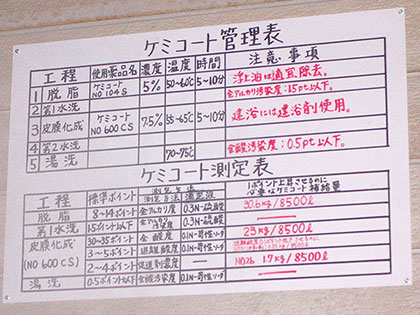 ケミコート管理表
工程 使用薬品名 濃度 温度 時間 注意事項
1 脱脂 ケミコート NO 104S 5% 50~60℃ 5~10分 浮上油は適宜除去。
2 第1水洗 全アルカリ汚染度:15pt以下。
3 皮膜化成 ケミコート NO 600CS 7.5% 55~65℃ 5~10分 建浴には建浴剤使用。
4 第2水洗 全酸汚染度:0.5pt以下。
5 湯洗 70~75℃
ケミコート測定表
工程 標準ポイント 測定方法 滴定液 1ポイント上昇させるのに必要なケミコート補給量
脱脂 8~14ポイント 全アルカリ度 0.3N-硫酸 30.6kg/8500ℓ
第1水洗 1.5ポイント以下 全アルカリ汚染度 0.3N-硫酸
皮膜化成 30~35ポイント 全酸度 0.1N-苛性ソーダ 23kg/8500ℓ
(NO 600CS) 3~5ポイント 遊離酸度 0.1N-苛性ソーダ
2~4ポイント 促進剤濃度 NO26 1.7kg/8500ℓ
湯洗 0.5ポイント以下 全酸汚染度 0.1N-苛性ソーダ